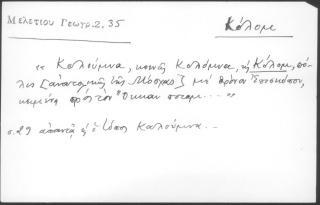 Μελετίου Γεωγρ. 2, 35
Κόλομε
« Κολούμνα, κοινῶς Κολόμνα, ἢ Κόλομε, πό-
λις [ἀνατολικῶς τῆς Μόσχας] μὲ θρόνον Ἐπισκόπου,
κειμένη πρὸς τὸν Ὄκκαν ποταμ....»
σ. 29 ἀπαντᾷ ὁ τύπος Καλούμνα. –